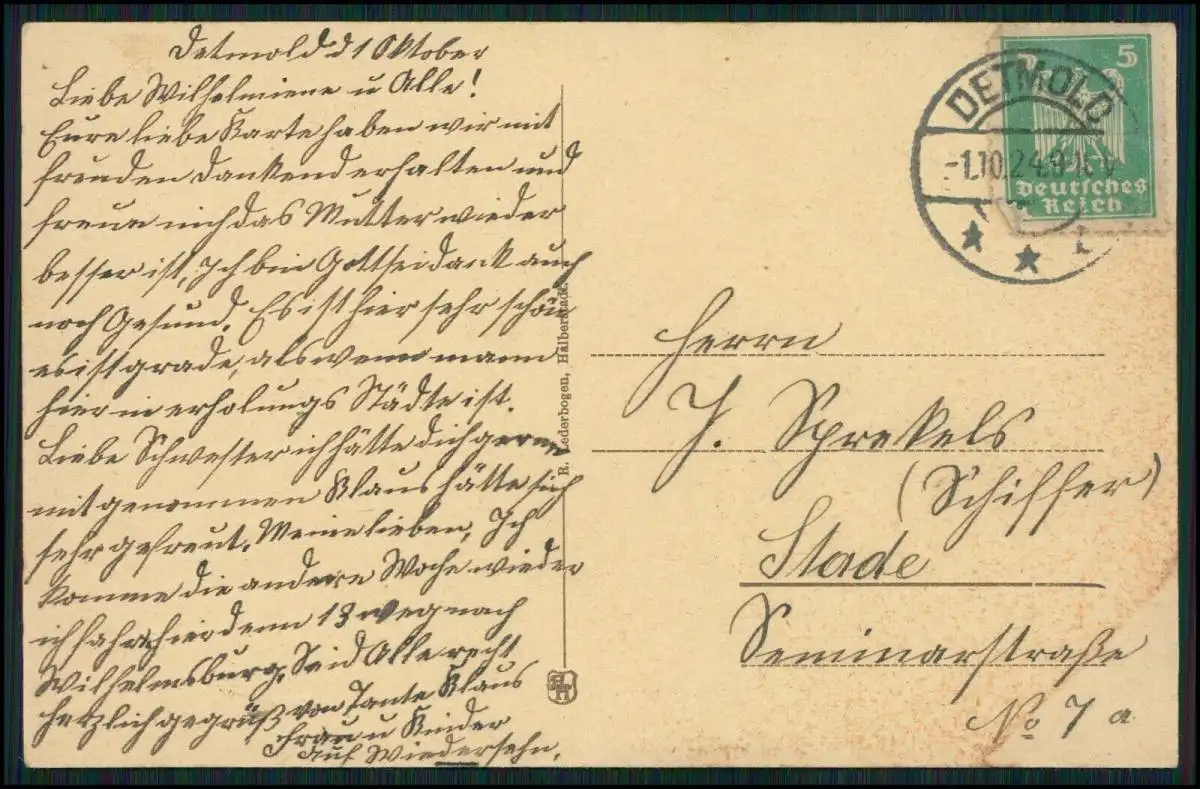 Detmold d 1 Oktober
Liebe Wilhelmiene u Alle!
Eure liebe Karte haben wir mit
freuden dankend erhalten und
freue mich das Mutter wieder
besser ist, Ich bin Gott sei dank auch
noch Gesund. Es ist hier sehr schön
es ist grade, als wenn mann
hier in erholungs Städte ist.
Liebe Schwester ich hätte dich gerne
mit genommen Klaus hätte sich
sehr gefreut. Meine lieben, Ich
komme die andere Woche wieder
ich fahre hier denn 13 weg nach
Wilhelmsburg. Seid Alle recht
herzlich gegrüß von Tante Klaus
Frau u Kinder
Auf Wiedersehn.
R. Lederbogen, Halberstadt.
5
Deutsches
Reich
DETMOLD
-1.10.24.9-10V
Herrn
J. Sprekels
(Schiffer)
Stade
Seminarstraße
No 7 a